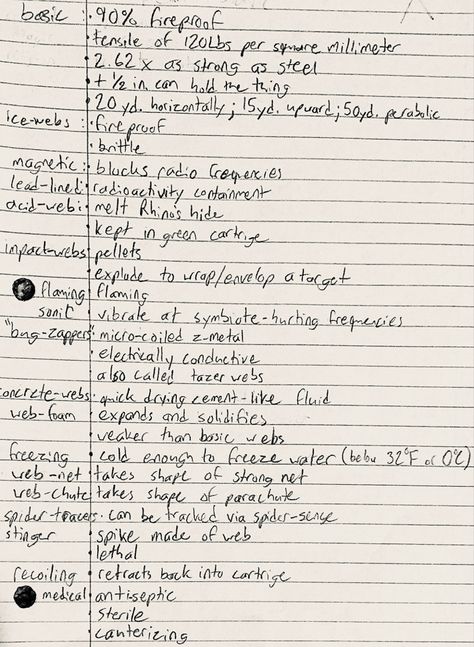 basic : • 90% fireproof
• tensile of 120Lbs per square millimeter
• 2.62 x as strong as steel
• + ½ in. can hold the thing
• 20 yd. horizontally ; 15yd. upward ; 50yd. parabolic
ice-webs : • fireproof
• brittle
magnetic : • blocks radio frequencies
lead-lined • radioactivity containment
acid-web : • melt Rhino's hide
• kept in green cartrige
impact-webs • pellets
• explode to wrap/envelop a target
flaming • flaming
sonic • vibrate at symbiote-hurting frequencies
"bug-zappers" • micro-coiled z-metal
• electrically conductive
• also called tazer webs
concrete-webs • quick drying cement-like fluid
web-foam • expands and solidifies
• weaker than basic webs
freezing • cold enough to freeze water (below 32°F or 0°C)
web-net • takes shape of strong net
web-chute • takes shape of parachute
spider-tracers • can be tracked via spider-sense
stinger • spike made of web
• lethal
recoiling • retracts back into cartrige
medical • antiseptic
• sterile
• canterizing